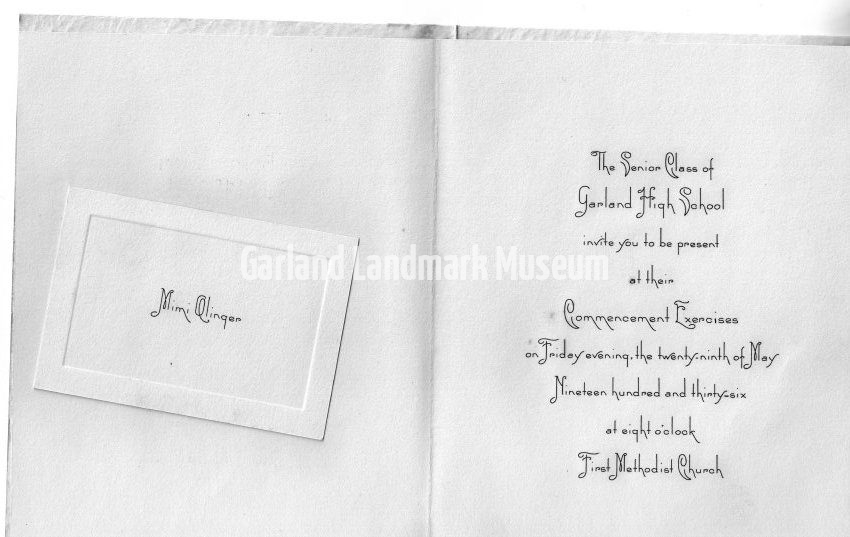 Mimi Olinger
The Senior Class of
Garland High School
invite you to be present
at their
Commencement Exercises
on Friday evening, the twenty-ninth of May
Nineteen hundred and thirty-six
at eight o'clock
First Methodist Church
Garland Landmark Museum